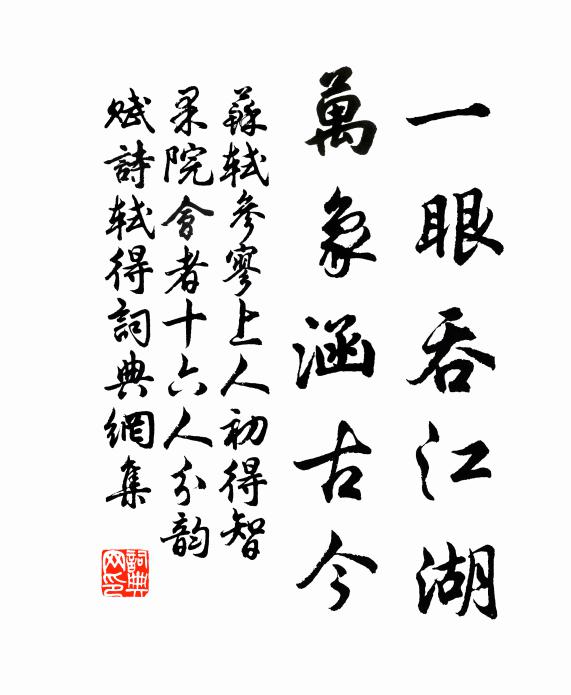 一眼吞江湖
萬象涵古今
蘇軾參寥上人初得智
杲院會者十六人分韵
賦詩軾得詞典網集
詞典网印